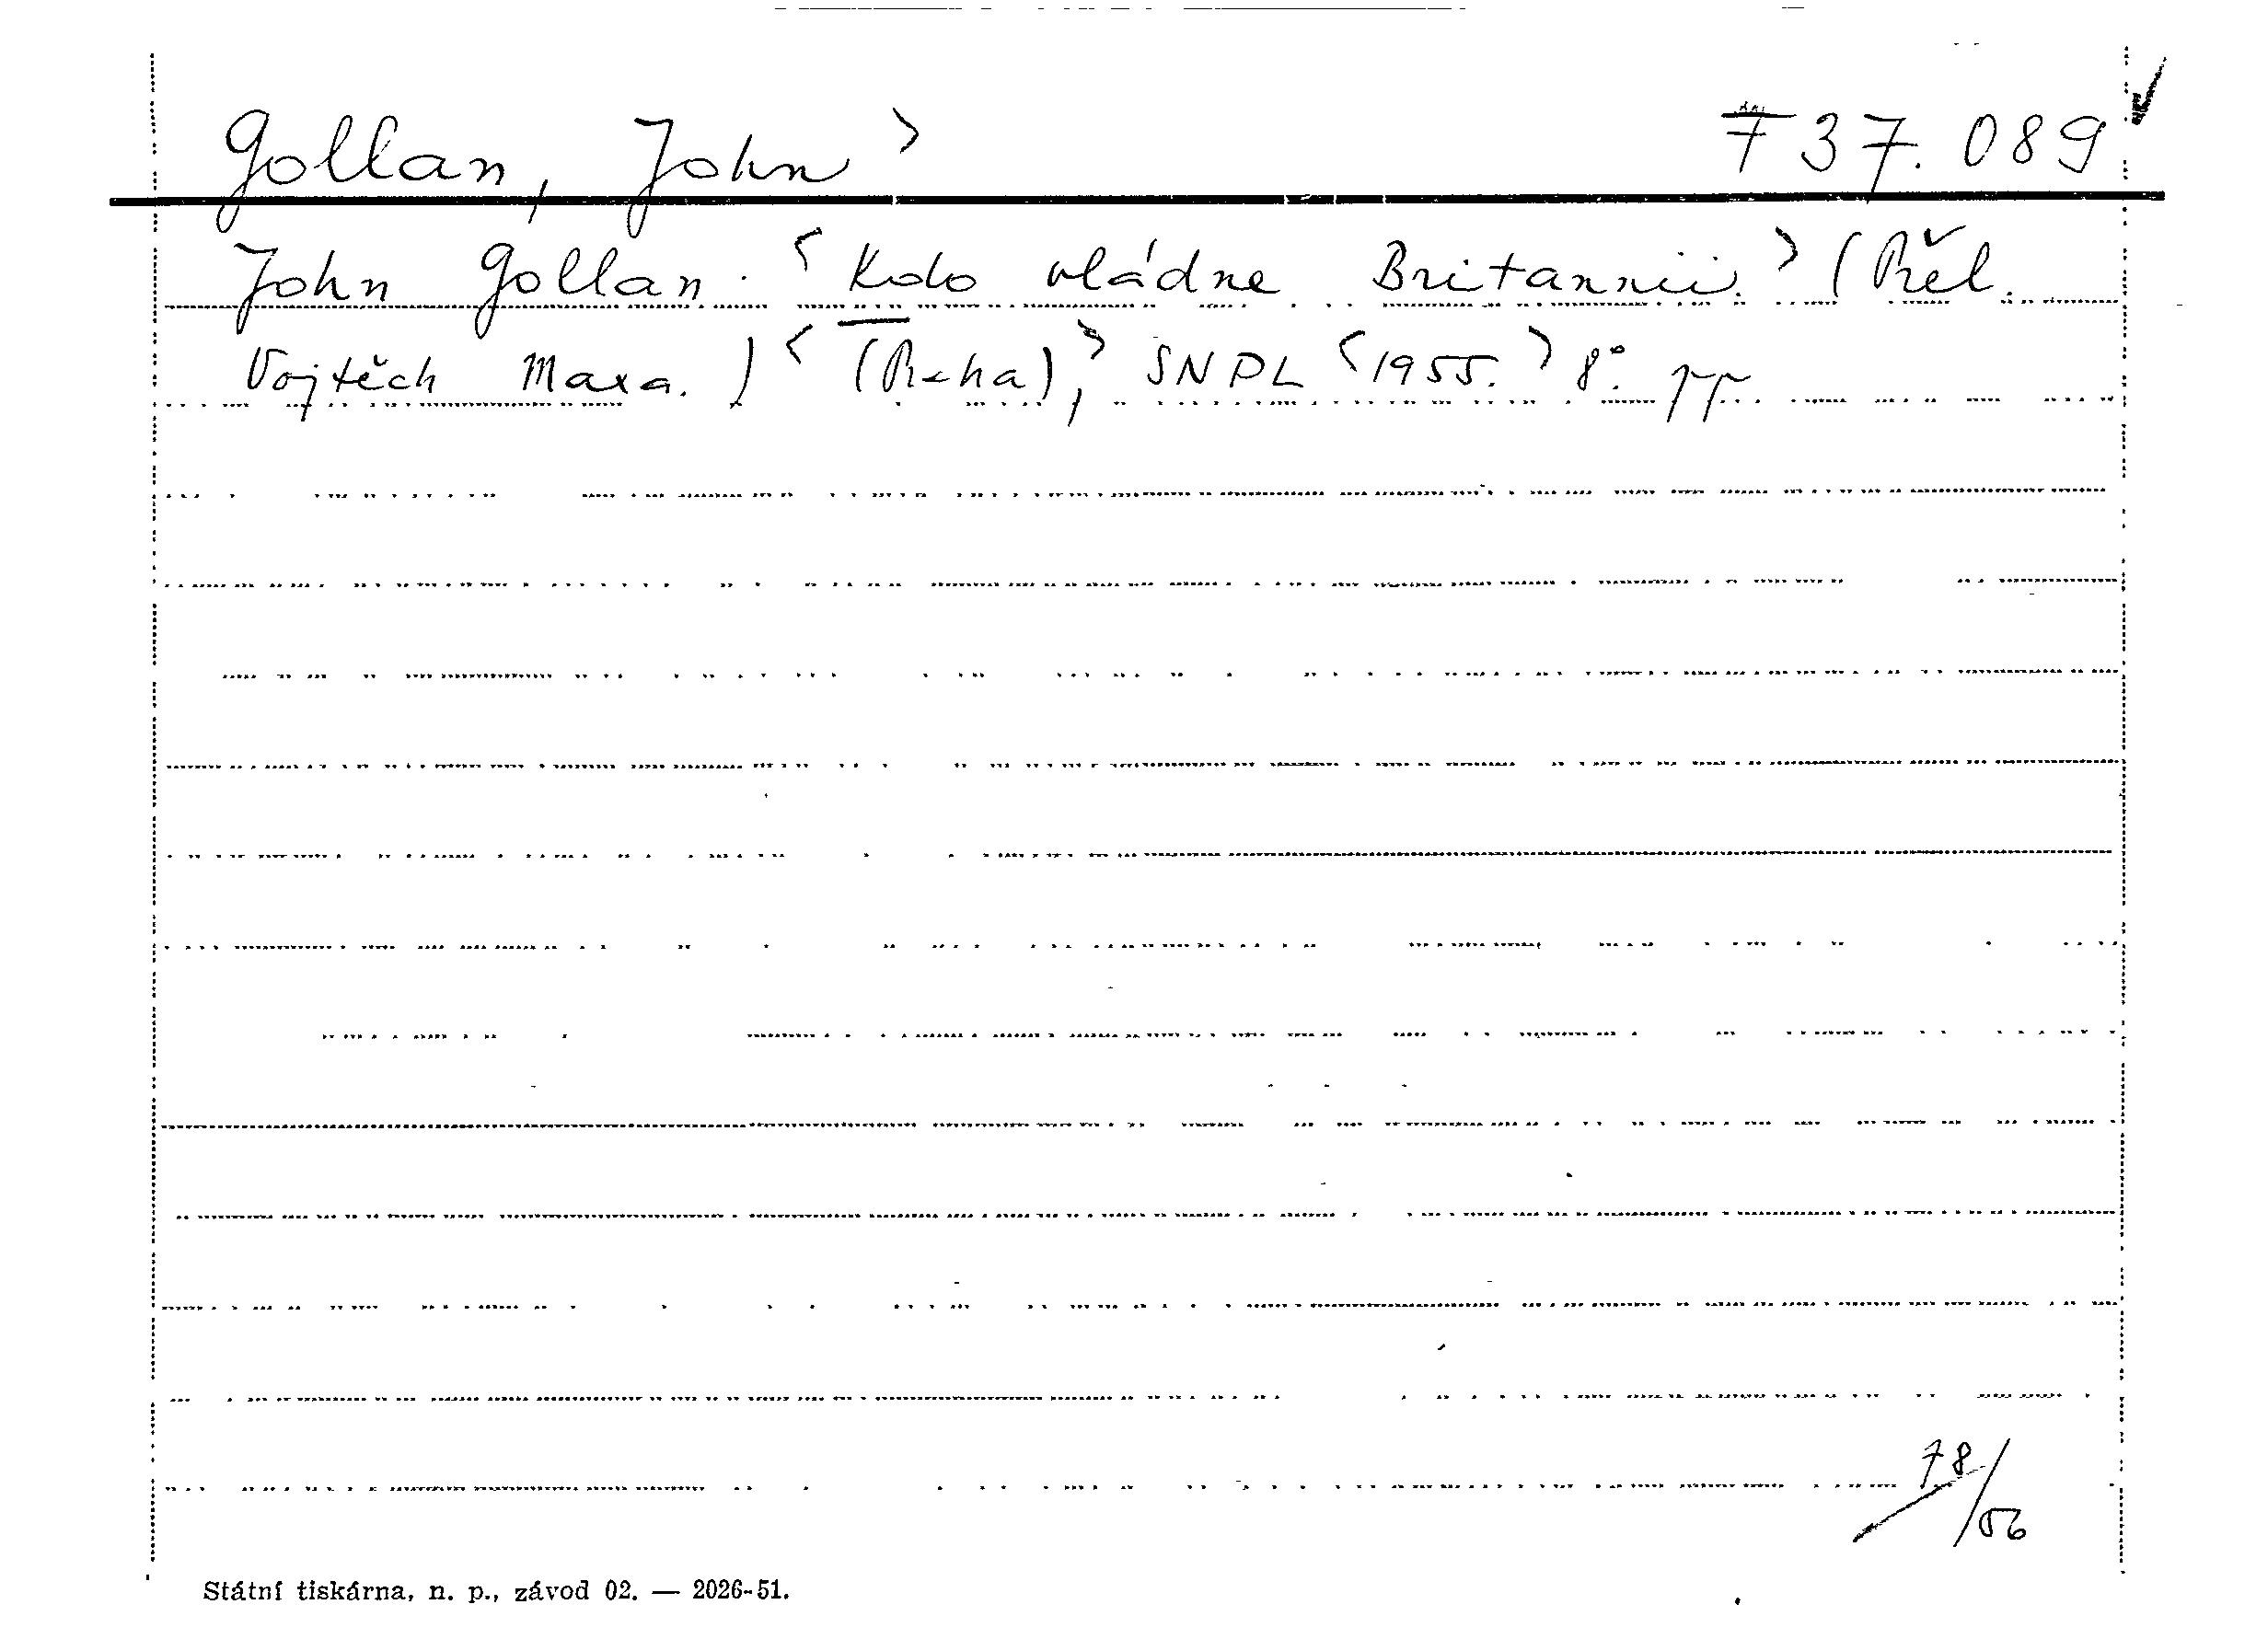 Gollan, John > F 37.089
John Gollan. < Kdo vládne Britannii. > (Přel.
Vojtěch Maxa.) < (Praha), > SNPL < 1955. > 8°. pp
78/56
Státní tiskárna, n. p., závod 02. — 2026-51.